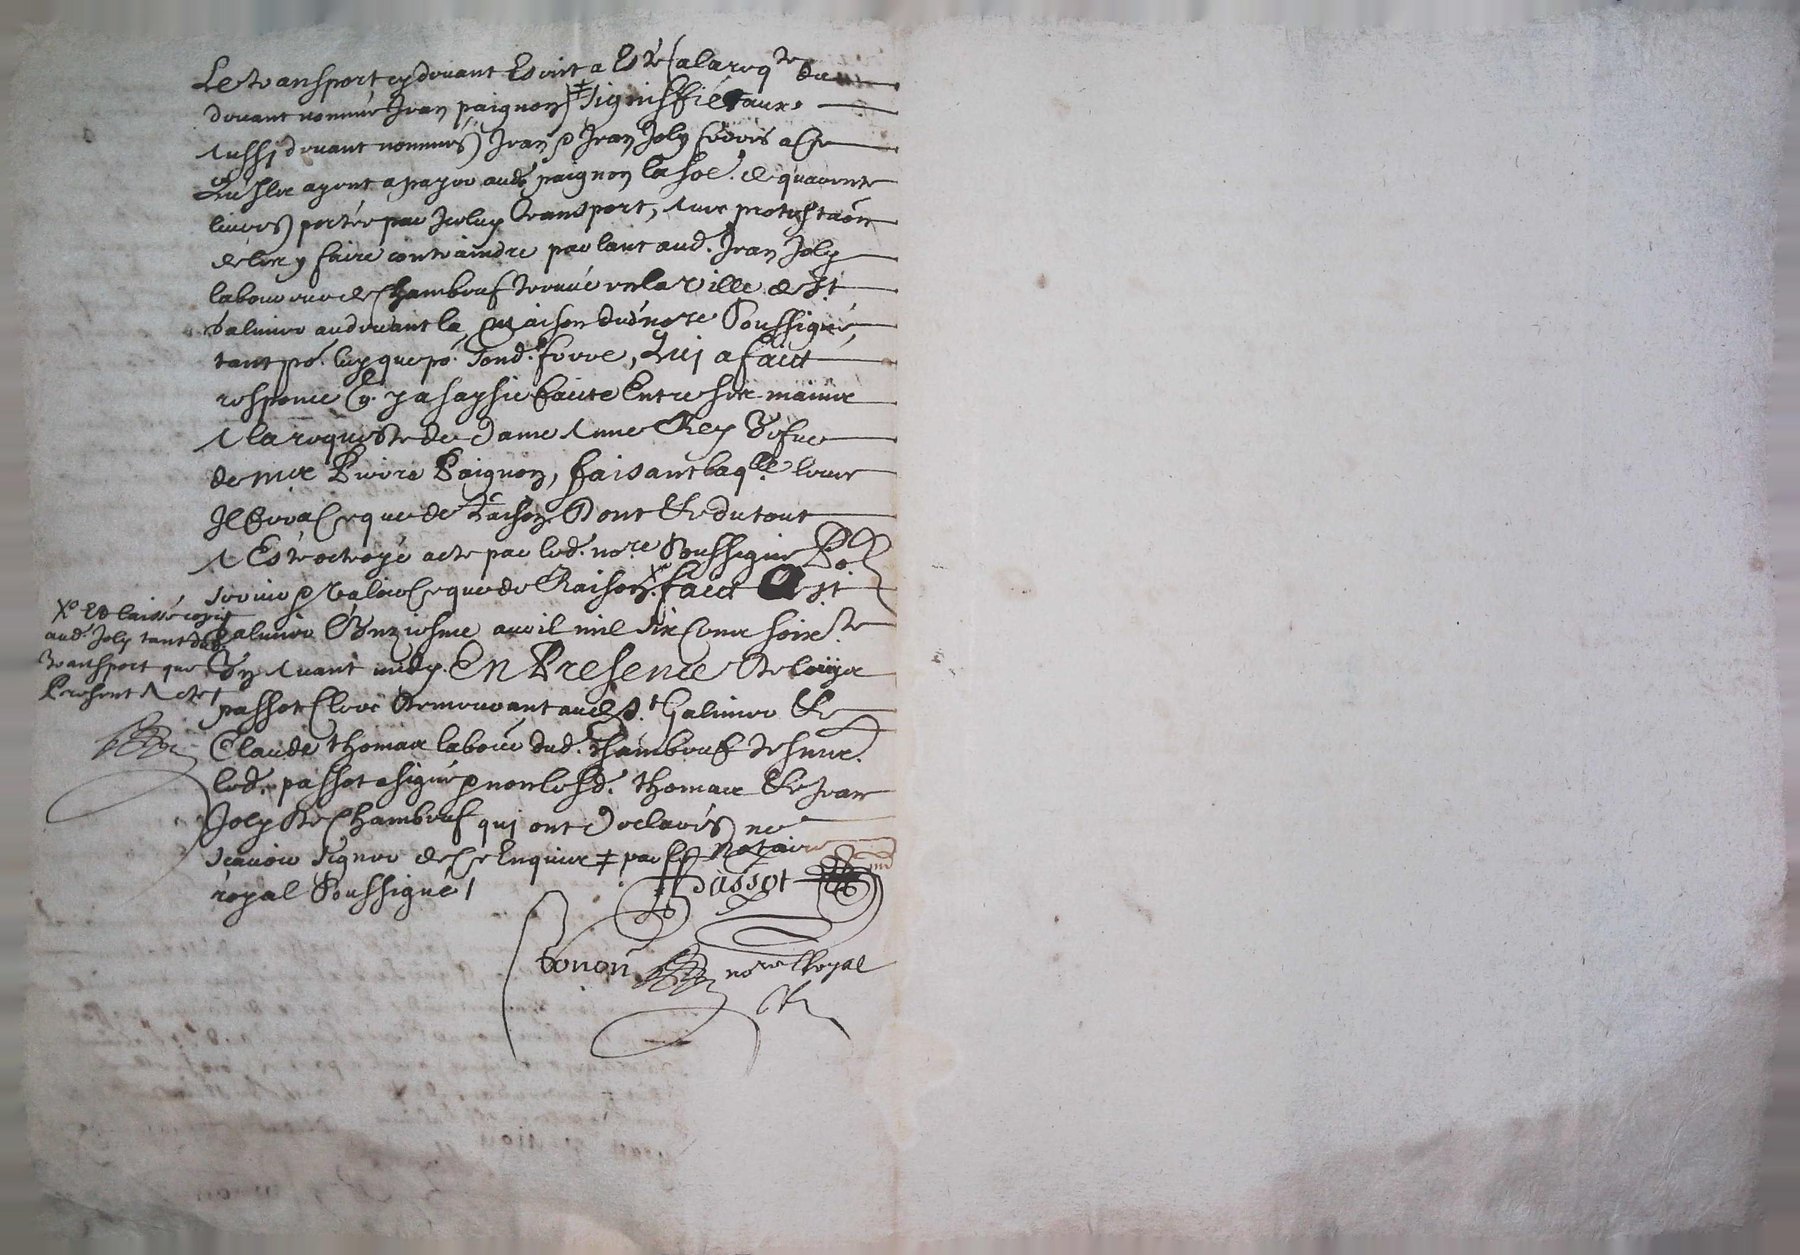 Le transport cy devant Escrit a Esté a la req.te du
devant nommé Jean paignon ‡ signiffié aux
Aussy devant nommés Jean & Jean Joly freres a ce
qu'ils ayent a payer aud. paignon la soē. de quarente
livres portée par Jceluy transport, Avec protestaõn
de les y faire contraindre parlant aud. Jean Joly
laboureur de Chambeuf trouvé en la ville de St
Galmier au devant la maison du nore Soussigné,
tant po.r luy que po.r sond. frere, Quj a faict
response q. y a saysie faicte Entre ses mains
A la requeste de dame Anne Rey vefve
de mre Pierre Paignon, faisant laq.lle lever
Jl fera ce que de Raison Dont & du tout
A Esté octroyé acte par led. no.re Soussigné Po.r
servir & valoir ce que de Raison Xo faict A St
Galmier Onziesme avril mil six cens soix.te
Un Avant midy. En Presence De Loüys
passot Clerc Demeurant aud. St Galmier &
Claude thomas labour. dud. Chambeuf tesms.
led. passot a signé & non lesd. thomas & Jean
Joly de Chambeuf quj ont declarés ne
scavoir signer de ce Enquis ‡ par le Notaire
royal Soussigné /
Xo Et laissé copie
aud. Joly tant dud.
transport que
Present Acte /
Passot
no.re Royal